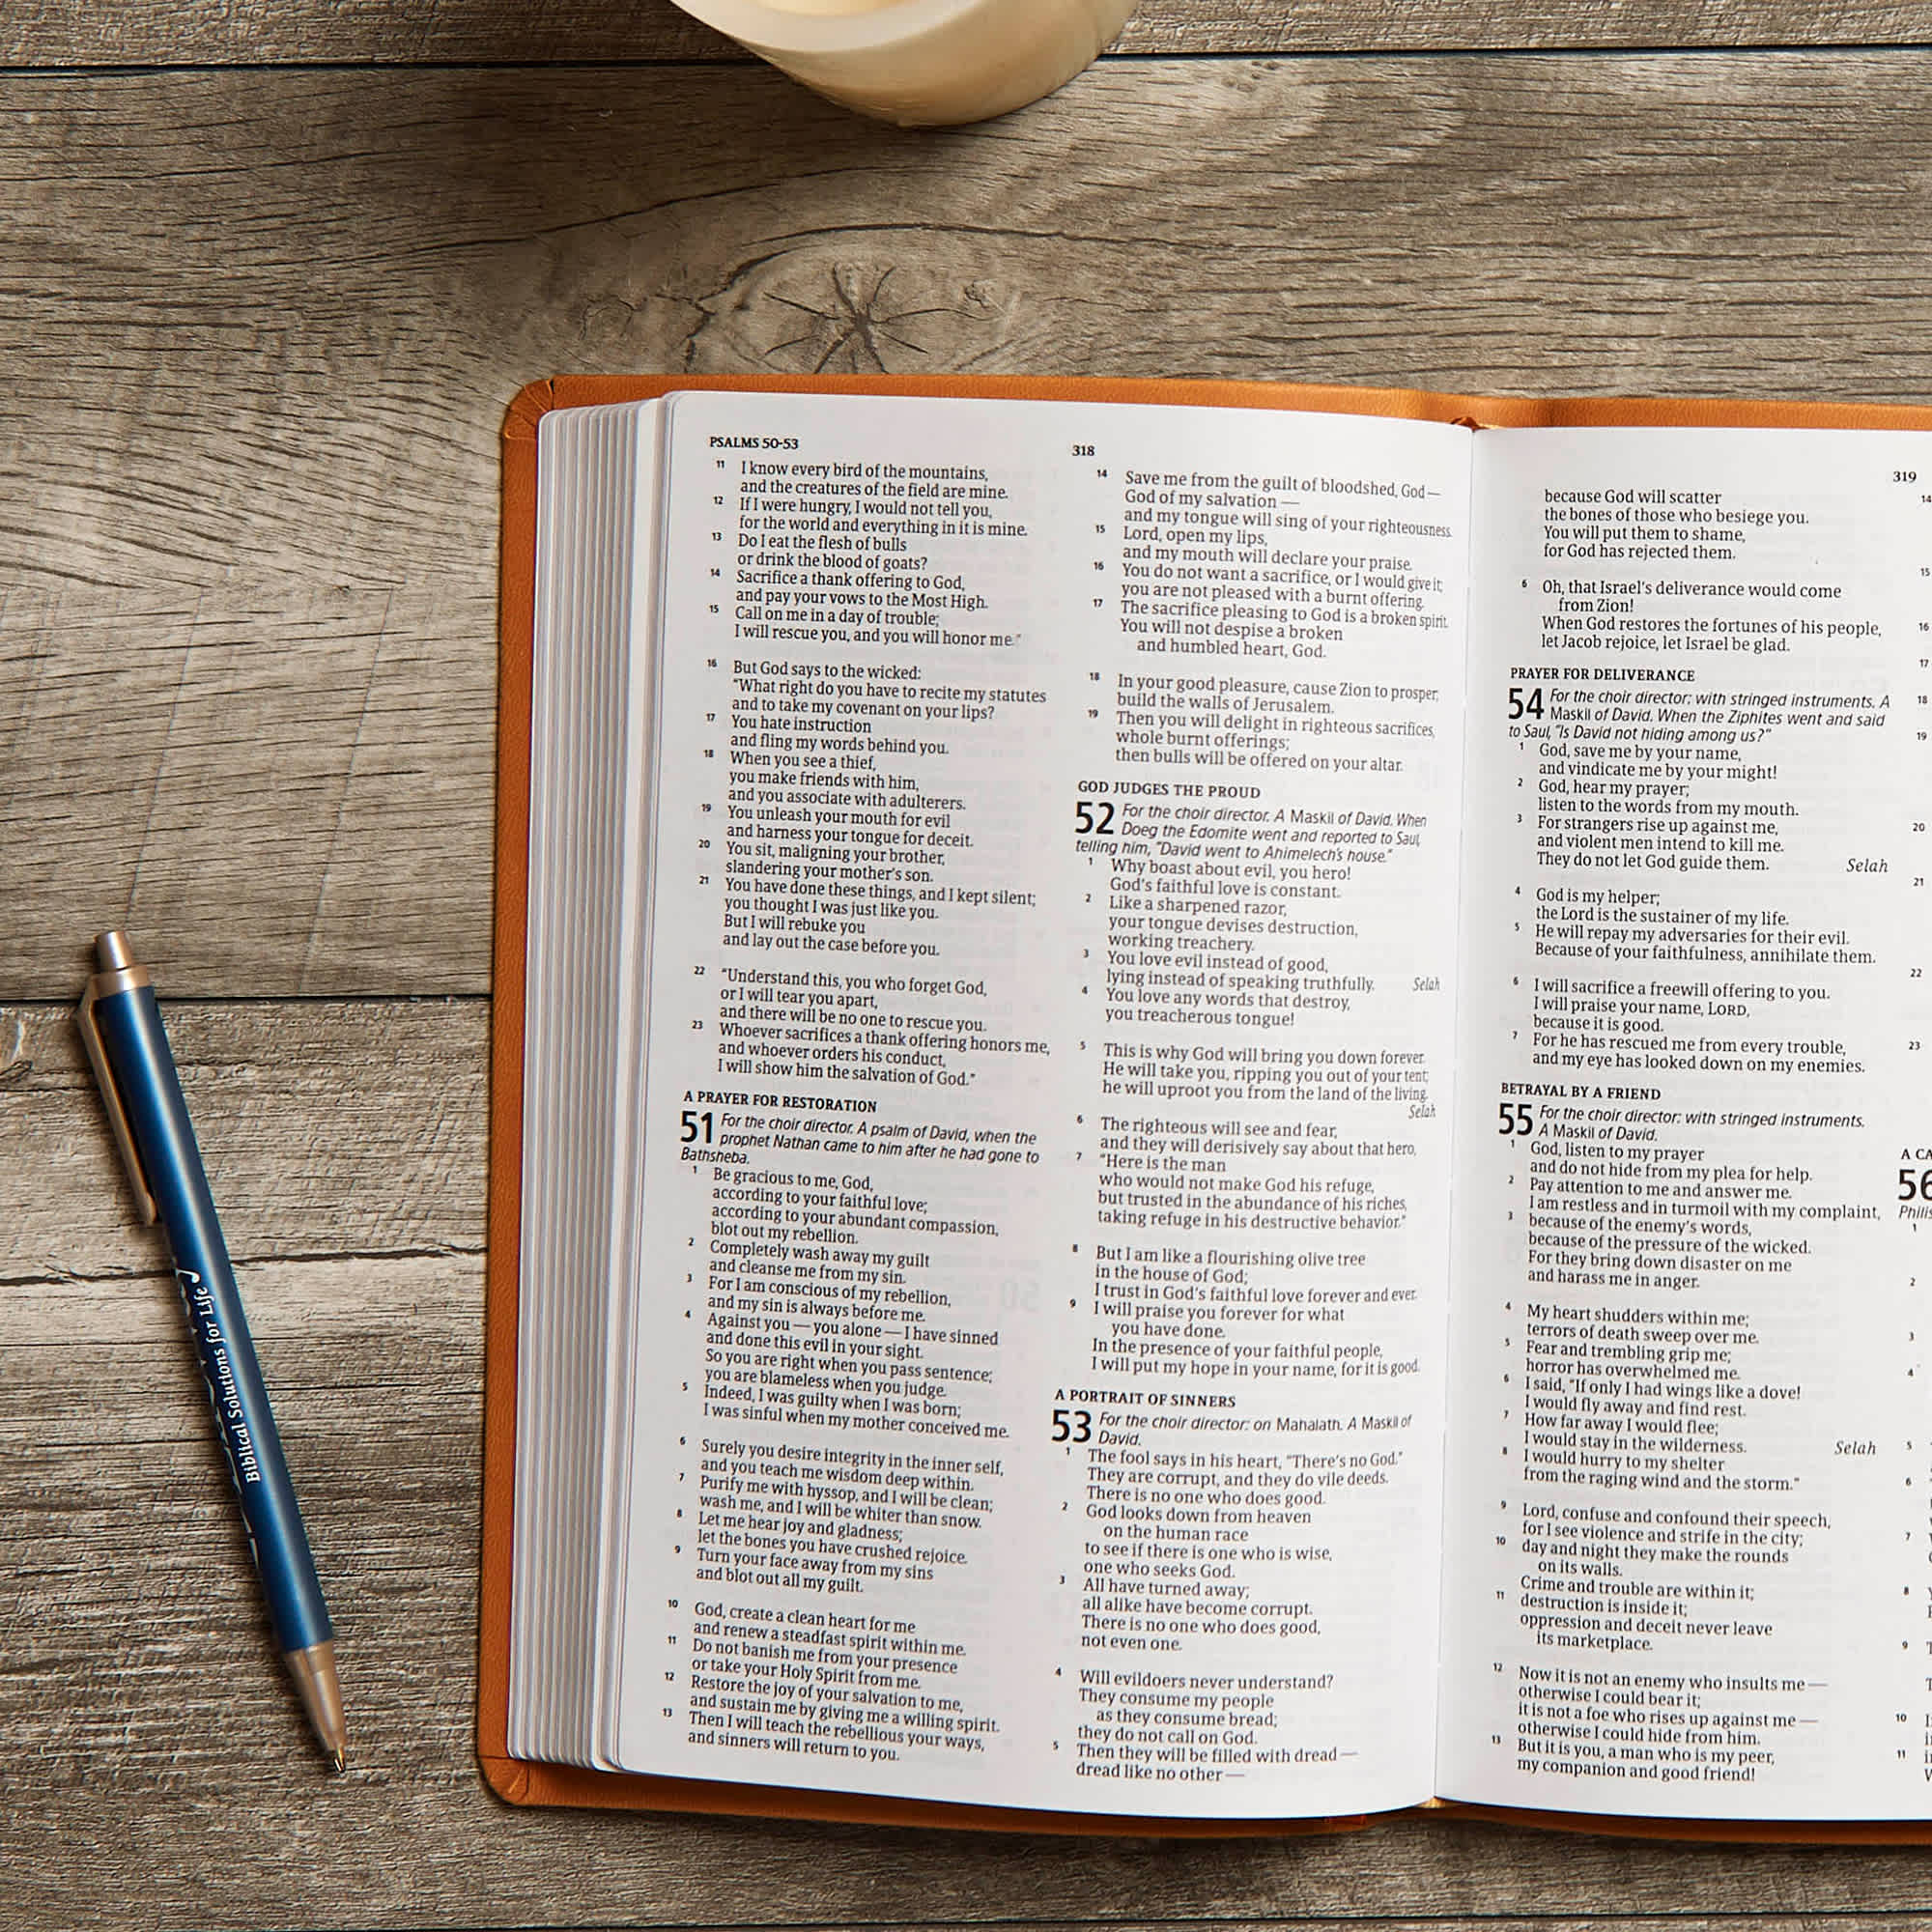 PSALMS 50-53
11 I know every bird of the mountains,
and the creatures of the field are mine.
12 If I were hungry, I would not tell you,
for the world and everything in it is mine.
13 Do I eat the flesh of bulls
or drink the blood of goats?
14 Sacrifice a thank offering to God,
and pay your vows to the Most High.
15 Call on me in a day of trouble;
I will rescue you, and you will honor me."
16 But God says to the wicked:
"What right do you have to recite my statutes
and to take my covenant on your lips?
17 You hate instruction
and fling my words behind you.
18 When you see a thief,
you make friends with him,
and you associate with adulterers.
19 You unleash your mouth for evil
and harness your tongue for deceit.
20 You sit, maligning your brother,
slandering your mother's son.
21 You have done these things, and I kept silent;
you thought I was just like you.
But I will rebuke you
and lay out the case before you.
22 "Understand this, you who forget God,
or I will tear you apart,
and there will be no one to rescue you.
23 Whoever sacrifices a thank offering honors me,
and whoever orders his conduct,
I will show him the salvation of God."
A PRAYER FOR RESTORATION
51 For the choir director. A psalm of David, when the
prophet Nathan came to him after he had gone to
Bathsheba.
1 Be gracious to me, God,
according to your faithful love;
according to your abundant compassion,
blot out my rebellion.
2 Completely wash away my guilt
and cleanse me from my sin.
3 For I am conscious of my rebellion,
and my sin is always before me.
4 Against you — you alone — I have sinned
and done this evil in your sight.
So you are right when you pass sentence;
you are blameless when you judge.
5 Indeed, I was guilty when I was born;
I was sinful when my mother conceived me.
6 Surely you desire integrity in the inner self,
and you teach me wisdom deep within.
7 Purify me with hyssop, and I will be clean;
wash me, and I will be whiter than snow.
8 Let me hear joy and gladness;
let the bones you have crushed rejoice.
9 Turn your face away from my sins
and blot out all my guilt.
10 God, create a clean heart for me
and renew a steadfast spirit within me.
11 Do not banish me from your presence
or take your Holy Spirit from me.
12 Restore the joy of your salvation to me,
and sustain me by giving me a willing spirit.
13 Then I will teach the rebellious your ways,
and sinners will return to you.
318
14 Save me from the guilt of bloodshed, God—
God of my salvation —
and my tongue will sing of your righteousness.
15 Lord, open my lips,
and my mouth will declare your praise.
16 You do not want a sacrifice, or I would give it;
you are not pleased with a burnt offering.
17 The sacrifice pleasing to God is a broken spirit.
You will not despise a broken
and humbled heart, God.
18 In your good pleasure, cause Zion to prosper;
build the walls of Jerusalem.
19 Then you will delight in righteous sacrifices,
whole burnt offerings;
then bulls will be offered on your altar.
GOD JUDGES THE PROUD
52 For the choir director. A Maskil of David. When
Doeg the Edomite went and reported to Saul,
telling him, "David went to Ahimelech's house."
1 Why boast about evil, you hero!
God's faithful love is constant.
2 Like a sharpened razor,
your tongue devises destruction,
working treachery.
3 You love evil instead of good,
lying instead of speaking truthfully. Selah
4 You love any words that destroy,
you treacherous tongue!
5 This is why God will bring you down forever.
He will take you, ripping you out of your tent;
he will uproot you from the land of the living.
Selah
6 The righteous will see and fear,
and they will derisively say about that hero,
7 "Here is the man
who would not make God his refuge,
but trusted in the abundance of his riches,
taking refuge in his destructive behavior."
8 But I am like a flourishing olive tree
in the house of God;
I trust in God's faithful love forever and ever.
9 I will praise you forever for what
you have done.
In the presence of your faithful people,
I will put my hope in your name, for it is good.
A PORTRAIT OF SINNERS
53 For the choir director: on Mahalath. A Maskil of
David.
1 The fool says in his heart, "There's no God."
They are corrupt, and they do vile deeds.
There is no one who does good.
2 God looks down from heaven
on the human race
to see if there is one who is wise,
one who seeks God.
3 All have turned away;
all alike have become corrupt.
There is no one who does good,
not even one.
4 Will evildoers never understand?
They consume my people
as they consume bread;
they do not call on God.
5 Then they will be filled with dread —
dread like no other —
319
because God will scatter
the bones of those who besiege you.
You will put them to shame,
for God has rejected them.
6 Oh, that Israel's deliverance would come
from Zion!
When God restores the fortunes of his people,
let Jacob rejoice, let Israel be glad.
PRAYER FOR DELIVERANCE
54 For the choir director: with stringed instruments. A
Maskil of David. When the Ziphites went and said
to Saul, "Is David not hiding among us?"
1 God, save me by your name,
and vindicate me by your might!
2 God, hear my prayer;
listen to the words from my mouth.
3 For strangers rise up against me,
and violent men intend to kill me.
They do not let God guide them. Selah
4 God is my helper;
the Lord is the sustainer of my life.
5 He will repay my adversaries for their evil.
Because of your faithfulness, annihilate them.
6 I will sacrifice a freewill offering to you.
I will praise your name, LORD,
because it is good.
7 For he has rescued me from every trouble,
and my eye has looked down on my enemies.
BETRAYAL BY A FRIEND
55 For the choir director: with stringed instruments.
A Maskil of David.
1 God, listen to my prayer
and do not hide from my plea for help.
2 Pay attention to me and answer me.
I am restless and in turmoil with my complaint,
3 because of the enemy's words,
because of the pressure of the wicked.
For they bring down disaster on me
and harass me in anger.
4 My heart shudders within me;
terrors of death sweep over me.
5 Fear and trembling grip me;
horror has overwhelmed me.
6 I said, "If only I had wings like a dove!
I would fly away and find rest.
7 How far away I would flee;
I would stay in the wilderness. Selah
8 I would hurry to my shelter
from the raging wind and the storm."
9 Lord, confuse and confound their speech,
for I see violence and strife in the city;
10 day and night they make the rounds
on its walls.
Crime and trouble are within it;
11 destruction is inside it;
oppression and deceit never leave
its marketplace.
12 Now it is not an enemy who insults me —
otherwise I could bear it;
it is not a foe who rises up against me —
otherwise I could hide from him.
13 But it is you, a man who is my peer,
my companion and good friend!
14
15
16
17
18
19
20
21
22
23
A CA
56
Philis
1
2
3
4
5
6
7
8
9
10
11
Biblical Solutions for Life